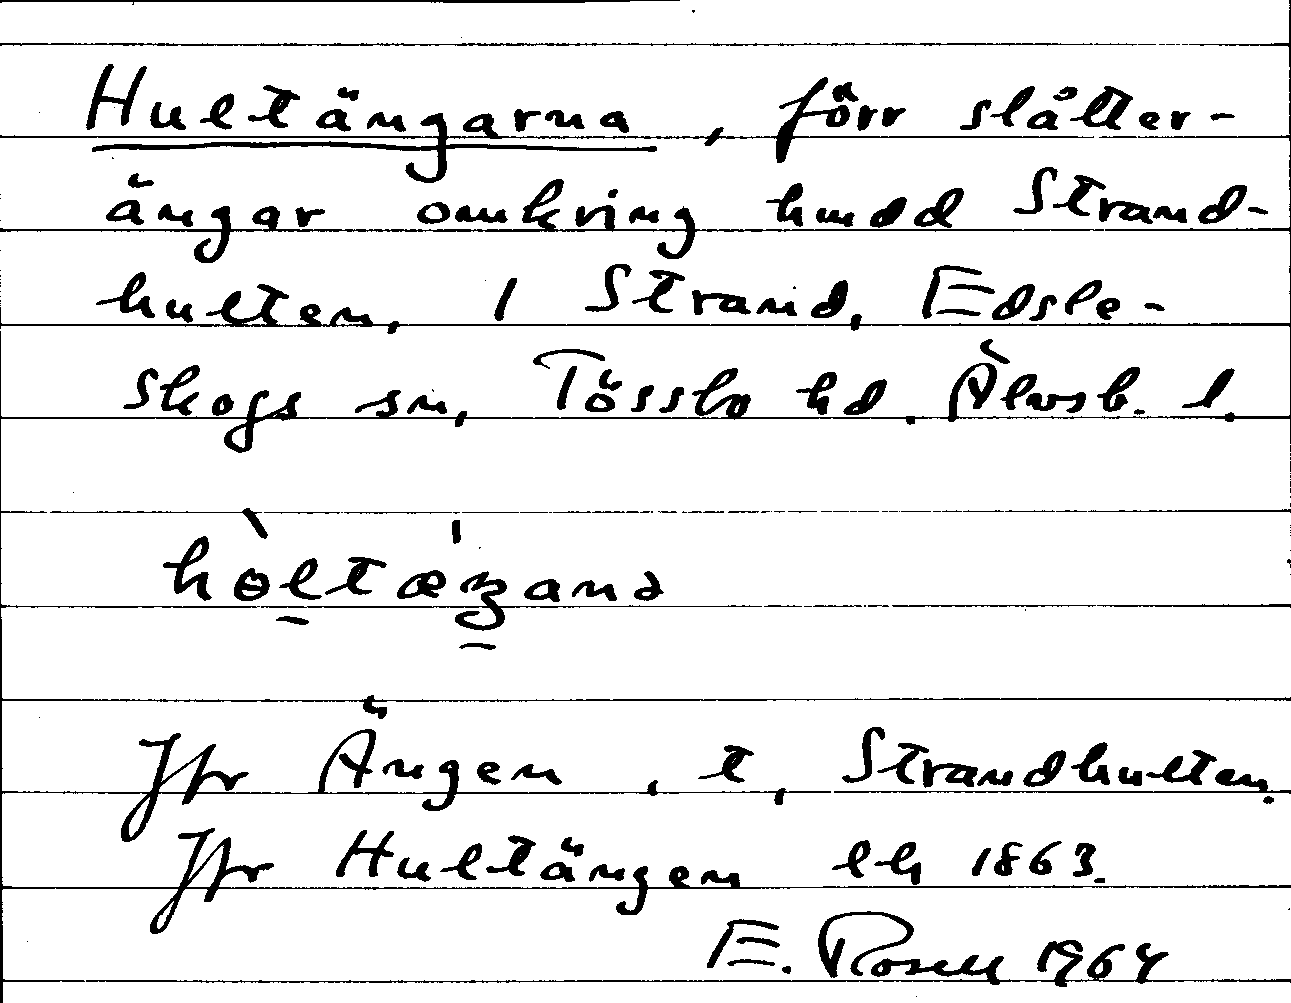 Hultängarna, förr slåtter-
ängar omkring hmdd Strand-
hulten, 1 Strand, Edsle-
skogs sn, Tössbo hd. Älvsb. l.
hòltæ̀ŋana
Jfr Ängen, t, Strandhulten.
Jfr Hultängen lh 1863.
E. Rosell 1964